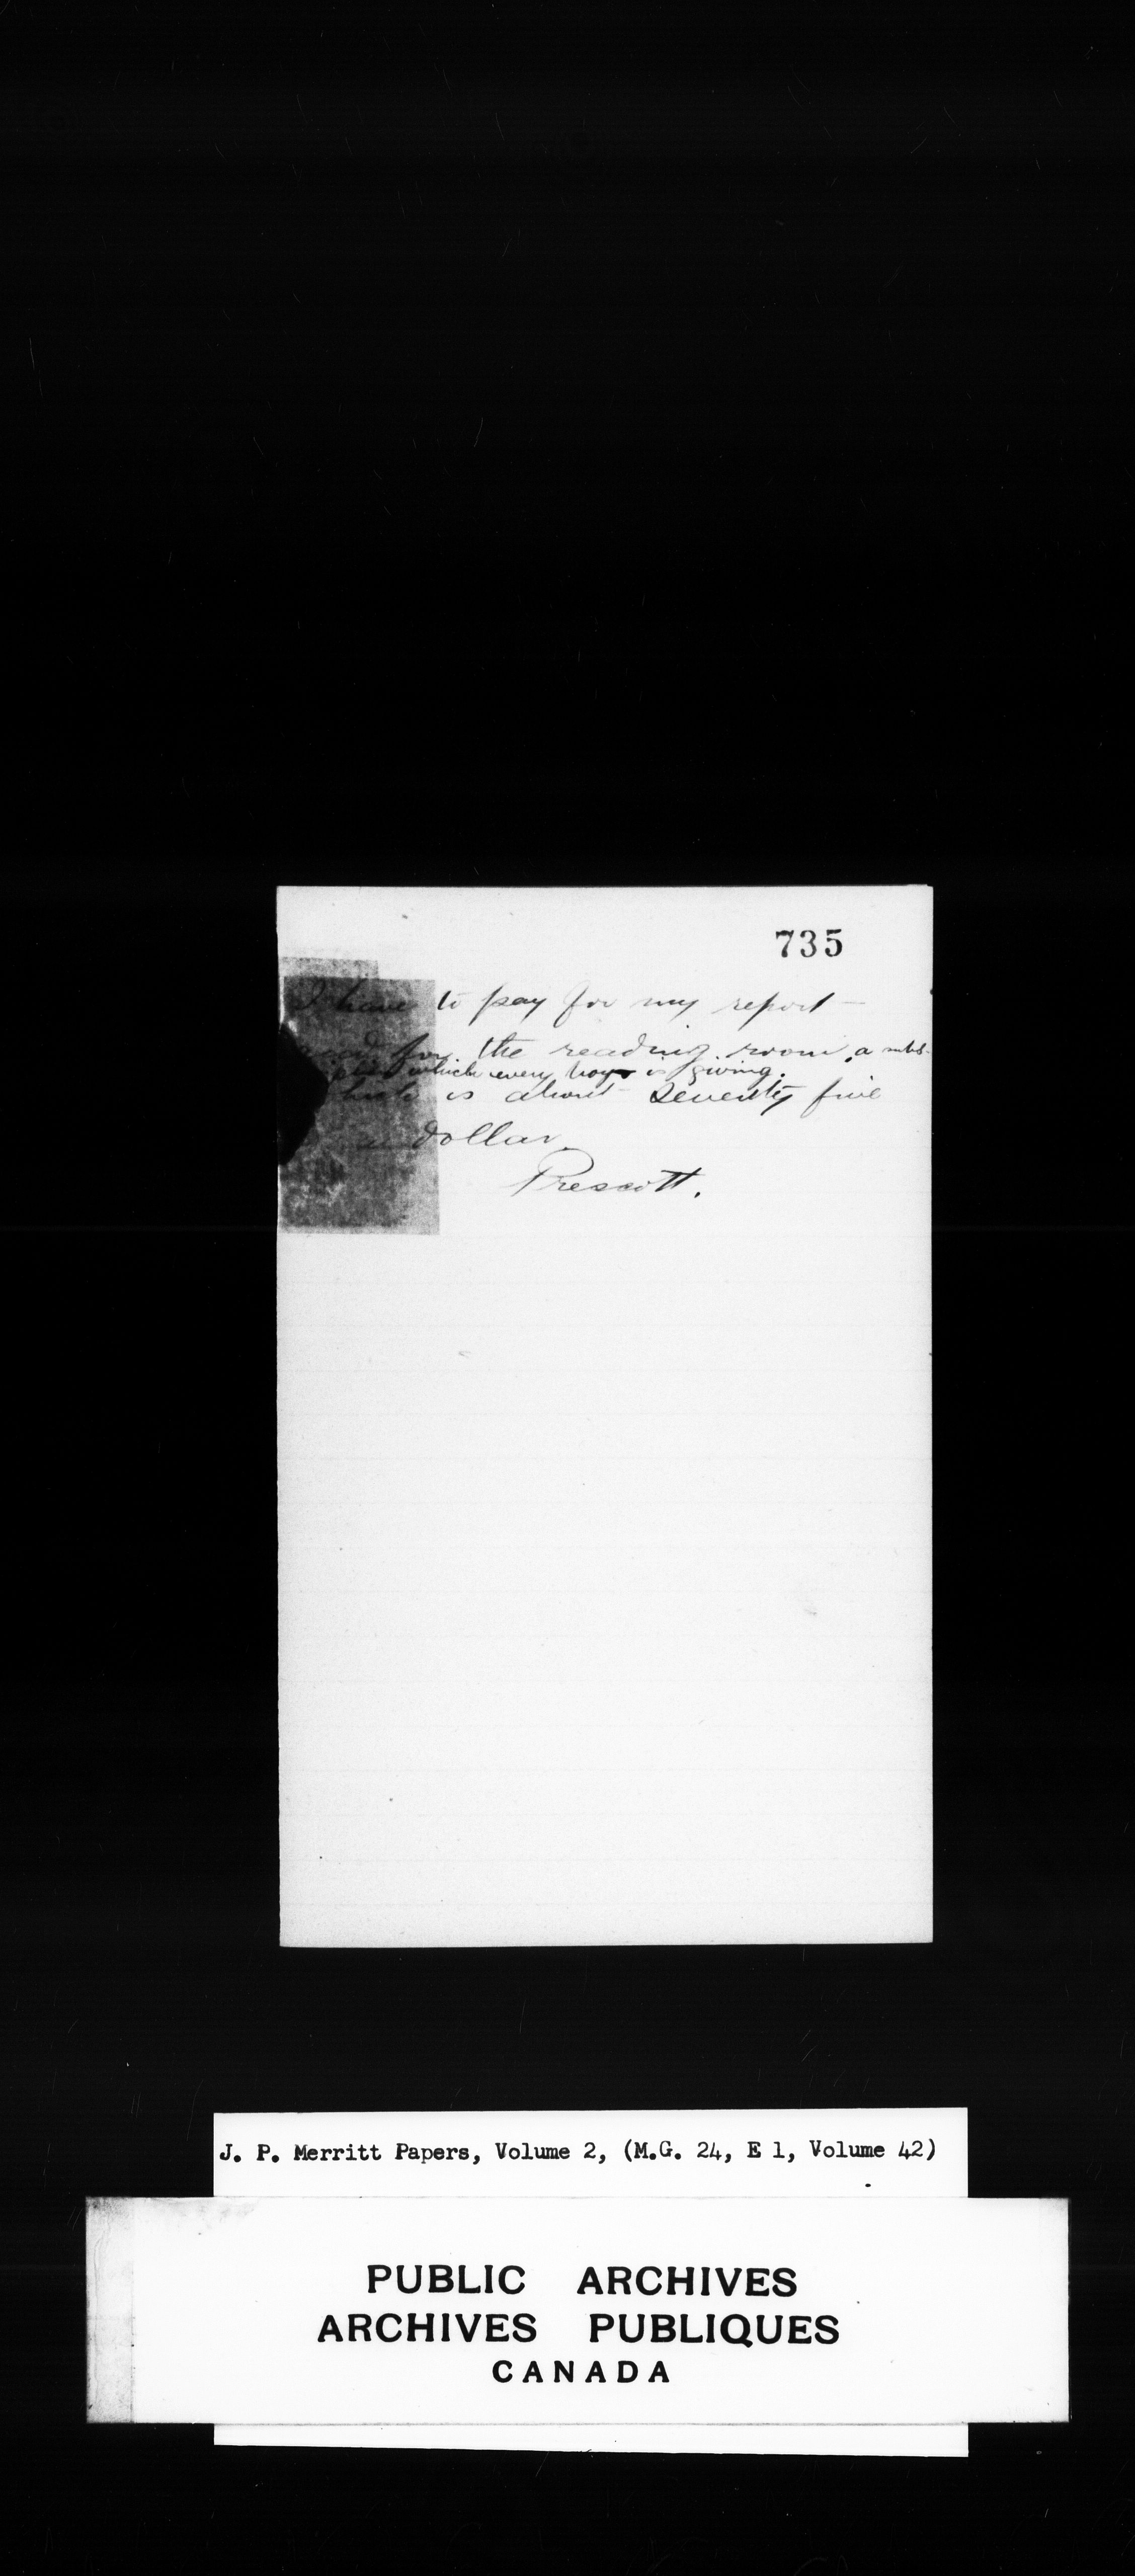 735
I have to pay for my report —
for the reading room, a subs-
which every boy is giving.
is about seventy five
a dollar.
Prescott.
J. P. Merritt Papers, Volume 2, (M.G. 24, E 1, Volume 42)
PUBLIC ARCHIVES
ARCHIVES PUBLIQUES
CANADA